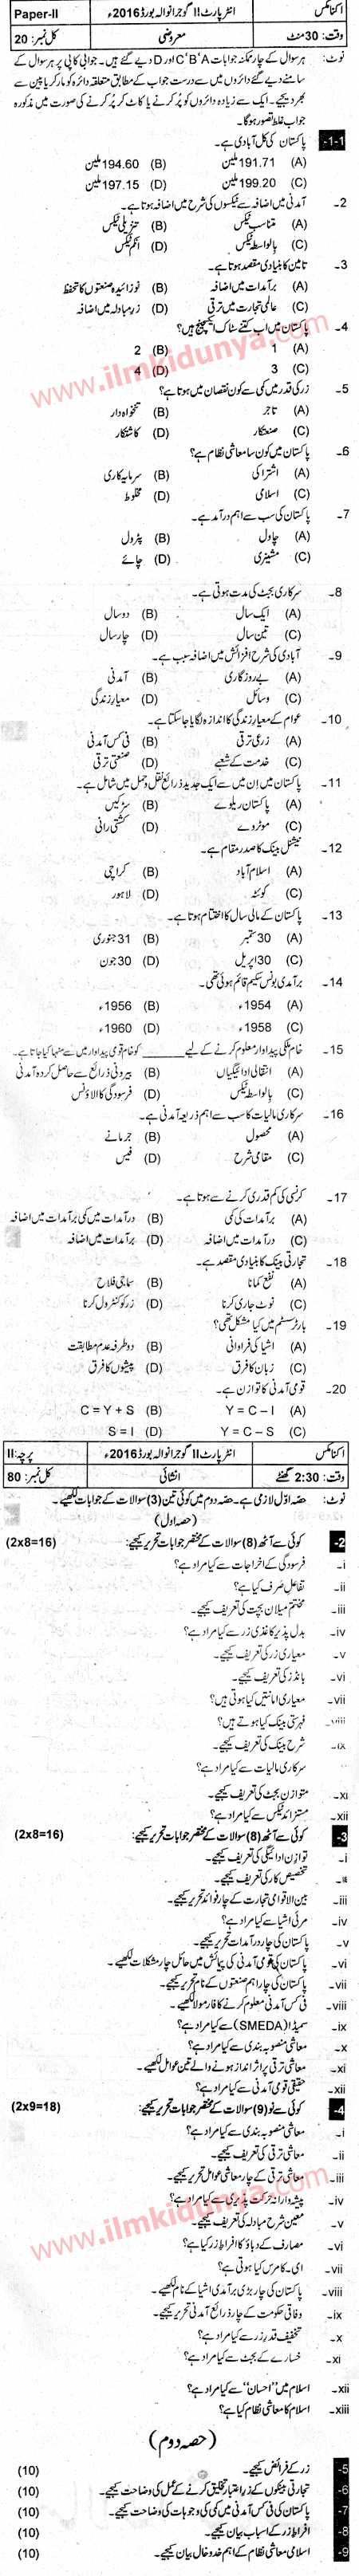 اکنامکس انٹرپارٹ II گوجرانوالہ بورڈ 2016ء Paper-II
وقت: 30 منٹ معروضی کل نمبر: 20
نوٹ: ہر سوال کے چار ممکنہ جوابات A‘B‘C اور D دیے گئے ہیں۔ جوابی کاپی پر ہر سوال کے
سامنے دیے گئے دائروں میں سے درست جواب کے مطابق متعلقہ دائرہ کو مارکر یا پین سے
بھر دیجیے۔ ایک سے زیادہ دائروں کو پُر کرنے یا کاٹ کر پُر کرنے کی صورت میں مذکورہ
جواب غلط تصور ہوگا۔
1-1- پاکستان کی کل آبادی ہے۔
(A) 191.71 ملین (B) 194.60 ملین
(C) 199.20 ملین (D) 197.15 ملین
2- آمدنی میں اضافہ سے ٹیکسوں کی شرح میں اضافہ ہوتا ہے۔
(A) متناسب ٹیکس (B) تنزیلی ٹیکس
(C) بالواسطہ ٹیکس (D) انکم ٹیکس
3- تامین کا بنیادی مقصد ہوتا ہے۔
(A) برآمدات میں اضافہ (B) نوزائیدہ صنعتوں کا تحفظ
(C) عالمی تجارت میں ترقی (D) زرمبادلہ میں اضافہ
4- پاکستان میں اب کتنے سٹاک ایکسچینج ہیں؟
(A) 1 (B) 2
(C) 3 (D) 4
5- زر کی قدر میں کمی سے کون نقصان میں ہوتا ہے؟
(A) تاجر (B) تنخواہ دار
(C) صنعتکار (D) کاشتکار
6- پاکستان میں کون سا معاشی نظام ہے؟
(A) اشتراکی (B) سرمایہ کاری
(C) اسلامی (D) مخلوط
7- پاکستان کی سب سے اہم درآمد ہے۔
(A) چاول (B) پٹرول
(C) مشینری (D) چائے
8- سرکاری بجٹ کی مدت ہوتی ہے۔
(A) ایک سال (B) دو سال
(C) تین سال (D) چار سال
9- آبادی کی شرح افزائش میں اضافہ سبب ہے۔
(A) بے روزگاری (B) آمدنی
(C) وسائل (D) معیارِ زندگی
10- عوام کے معیار زندگی کا اندازہ لگایا جا سکتا ہے۔
(A) زرعی ترقی (B) فی کس آمدنی
(C) خدمت کے شعبے (D) صنعتی ترقی
11- پاکستان میں اِن میں سے ایک جدید ذرائع نقل و حمل میں شامل ہے۔
(A) پاکستان ریلوے (B) سڑکیں
(C) موٹروے (D) کشتی رانی
12- نیشنل بینک کا صدر مقام ہے۔
(A) اسلام آباد (B) کراچی
(C) کوئٹہ (D) لاہور
13- پاکستان کے مالی سال کا اختتام ہوتا ہے۔
(A) 30 ستمبر (B) 31 جنوری
(C) 30 اپریل (D) 30 جون
14- برآمدی بونس سکیم قائم ہوئی تھی۔
(A) 1954ء (B) 1956ء
(C) 1958ء (D) 1960ء
15- خام ملکی پیداوار معلوم کرنے کے لیے ______ کو خام قومی پیداوار میں سے منہا کیا جاتا ہے۔
(A) انتقالی ادائیگیاں (B) بیرونی ذرائع سے حاصل کردہ آمدنی
(C) بالواسطہ ٹیکس (D) فرسودگی کا الاؤنس
16- سرکاری مالیات کا سب سے اہم ذریعہ آمدنی ہے۔
(A) محصول (B) جرمانے
(C) مقامی شرح (D) فیس
17- کرنسی کی کم قدری کرنے سے ہوتا ہے۔
(A) برآمدات کی کمی (B) درآمدات میں کمی برآمدات میں اضافہ
(C) درآمدات میں اضافہ (D) برآمدات میں اضافہ
18- تجارتی بینک کا بنیادی مقصد ہے۔
(A) نفع کمانا (B) سماجی فلاح
(C) نوٹ جاری کرنا (D) زر کو کنٹرول کرنا
19- بارٹر سسٹم میں کیا مشکل تھی؟
(A) اشیا کی فراوانی (B) دو طرفہ عدم مطابقت
(C) زبان کا فرق (D) پیشوں کا فرق
20- قومی آمدنی کا توازن ہے۔
(A) Y = C – I (B) C = Y + S
(C) Y = C – S (D) S = I
اکنامکس انٹرپارٹ II گوجرانوالہ بورڈ 2016ء پرچہ: II
وقت: 2:30 گھنٹے انشائی کل نمبر: 80
نوٹ: حصہ اوّل لازمی ہے۔ حصہ دوم میں کوئی تین (3) سوالات کے جوابات لکھیے۔
(حصہ اول)
2- کوئی سے آٹھ (8) سوالات کے مختصر جوابات تحریر کیجیے: (2x8=16)
i- فرسودگی کے اخراجات سے کیا مراد ہے؟
ii- تفاعل صَرف کیا ہے؟
iii- مختتم میلان بچت کی تعریف کیجیے۔
iv- بدل پذیر کاغذی زر سے کیا مراد ہے؟
v- معیاری زر کی تعریف کیجیے۔
vi- بانڈز کی تعریف کیجیے۔
vii- معیاری امانتیں کیا ہوتی ہیں؟
viii- فہرستی بینک کیا ہوتے ہیں؟
ix- شرح بینک کی تعریف کیجیے۔
سرکاری مالیات سے کیا مراد ہے؟
xi- متوازن بجٹ کی تعریف کیجیے۔
xii- مستزاد ٹیکس سے کیا مراد ہے؟
3- کوئی سے آٹھ (8) سوالات کے مختصر جوابات تحریر کیجیے: (2x8=16)
i- توازن ادائیگی کی تعریف کیجیے۔
ii- تخصیص کار کی تعریف کیجیے۔
iii- بین الاقوامی تجارت کے چار فوائد تحریر کیجیے۔
iv- مرئی اشیا سے کیا مراد ہے؟
v- پاکستان کی چار درآمدات تحریر کیجیے۔
vi- پاکستان کی قومی آمدنی کی پیمائش میں حائل چار مشکلات لکھیے۔
vii- پاکستان کی چار اہم صنعتوں کے نام تحریر کیجیے۔
viii- فی کس آمدنی معلوم کرنے کا فارمولا لکھیے۔
ix- سمیڈا (SMEDA) سے کیا مراد ہے؟
x- معاشی منصوبہ بندی سے کیا مراد ہے؟
xi- معاشی ترقی پر اثر انداز ہونے والے تین عوامل لکھیے۔
xii- حقیقی قومی آمدنی سے کیا مراد ہے؟
4- کوئی سے نو (9) سوالات کے مختصر جوابات تحریر کیجیے: (2x9=18)
i- معاشی منصوبہ بندی سے کیا مراد ہے؟
ii- معاشی ترقی کی تعریف کیجیے۔
iii- معاشی ترقی کے چار معاشی عوامل تحریر کیجیے۔
iv- پیشہ دارانہ حرکت پذیری سے کیا مراد ہے؟
v- معین شرح مبادلہ کی تعریف کیجیے۔
vi- مصارف کے دباؤ کا افراط زر کیا ہے؟
vii- ای۔کامرس کیا ہوتی ہے؟
viii- پاکستان کی چار بڑی برآمدی اشیا کے نام لکھیے۔
ix- وفاقی حکومت کے چار ذرائع آمدنی تحریر کیجیے۔
x- تخفیف قدر زر سے کیا مراد ہے؟
xi- خسارے کے بجٹ سے کیا مراد ہے؟
xii- اسلام میں ”احسان“ سے کیا مراد ہے؟
xiii- اسلام کا معاشی نظام کیا ہے؟
(حصہ دوم)
5- زر کے فرائض لکھیے۔ (10)
6- تجارتی بینکوں کے زر اعتبار تخلیق کرنے کے عمل کی وضاحت کیجیے۔ (10)
7- پاکستان کی فی کس آمدنی میں کمی کی وجوہات کی وضاحت کیجیے۔ (10)
8- افراط زر کے اسباب بیان کیجیے۔ (10)
9- اسلامی معاشی نظام کے اہم خدوخال بیان کیجیے۔ (10)
www.ilmkidunya.com
www.ilmkidunya.com